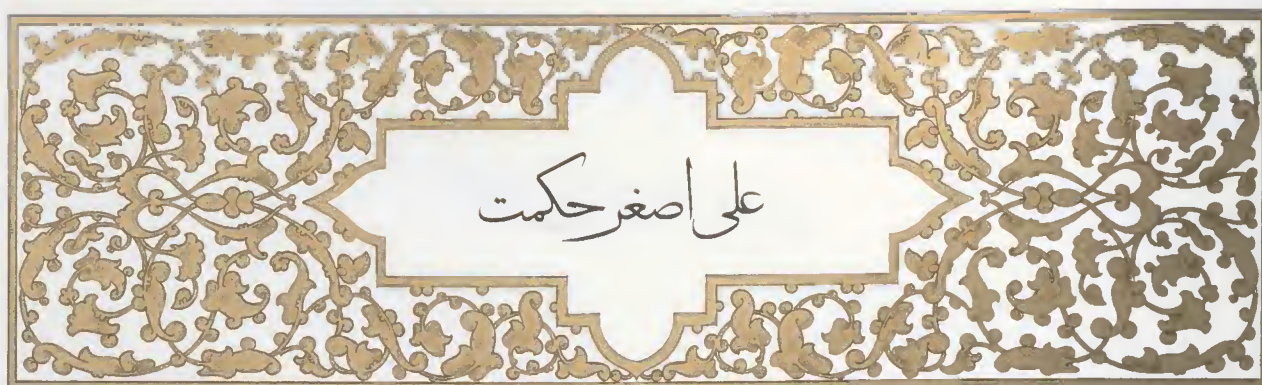 علی اصغر حکمت